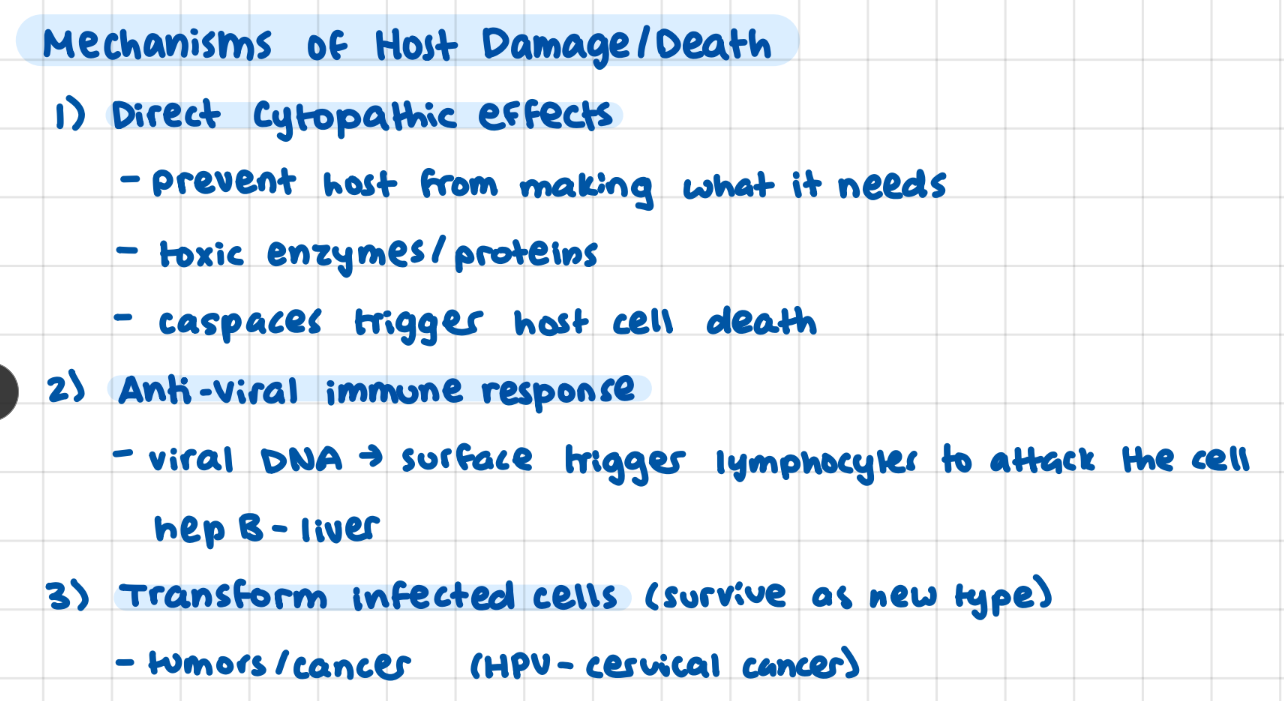 Mechanisms of Host Damage/Death
1) Direct Cytopathic effects
- prevent host from making what it needs
- toxic enzymes/proteins
- caspaces trigger host cell death
2) Anti-Viral immune response
- viral DNA → surface trigger lymphocytes to attack the cell
hep B - liver
3) Transform infected cells (survive as new type)
- tumors/cancer (HPV - cervical cancer)